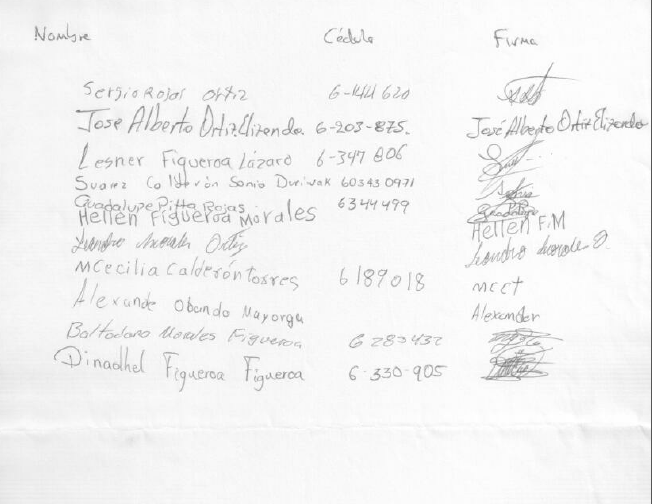 Nombre Cédula Firma
Sergio Rojas Ortiz 6-144 620
Jose Alberto Ortiz Elizondo. 6-203-875. José Alberto Ortiz Elizondo
Lesner Figueroa Lázaro 6-347 806
Suarez Calderón Sonia 603430971
Guadalupe Pitta Rojas. 6344499 Guadalupe
Hellen Figueroa Morales Hellen F.M
Leandro Morales Ortiz Leandro Morales O.
MCecilia Calderón torres 6189018 MCCT
Alexande Obando Mayorga Alexander
Baltodano Morales Figueroa 6 283432
Dinadhel Figueroa Figueroa 6-330-905